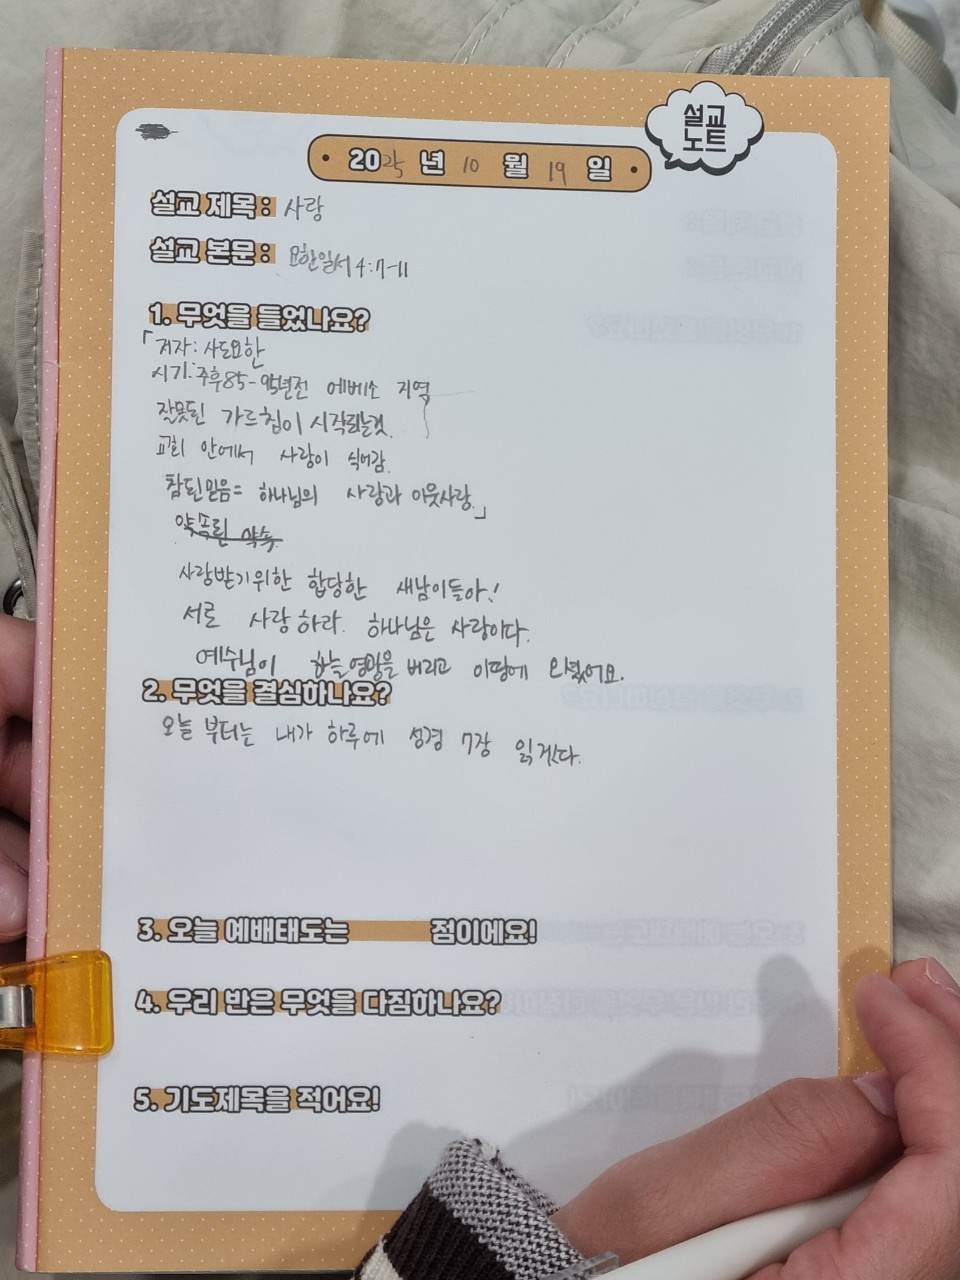 설교
노트
2025 년 10 월 19 일
설교 제목 : 사랑
설교 본문 : 요한일서 4:7-11
1. 무엇을 들었나요?
「저자: 사도요한
시기: 주후85-95년전 에베소 지역
잘못된 가르침이 시작되는것.
교회 안에서 사랑이 식어감.
참된믿음= 하나님의 사랑과 이웃사랑.」
사랑받기위한 합당한 새남이들아!
서로 사랑하라. 하나님은 사랑이다.
예수님이 하늘영광을 버리고 이땅에 오셨어요.
2. 무엇을 결심하나요?
오늘 부터는 내가 하루에 성경 7장 읽겠다.
3. 오늘 예배태도는 점이에요!
4. 우리 반은 무엇을 다짐하나요?
5. 기도제목을 적어요!